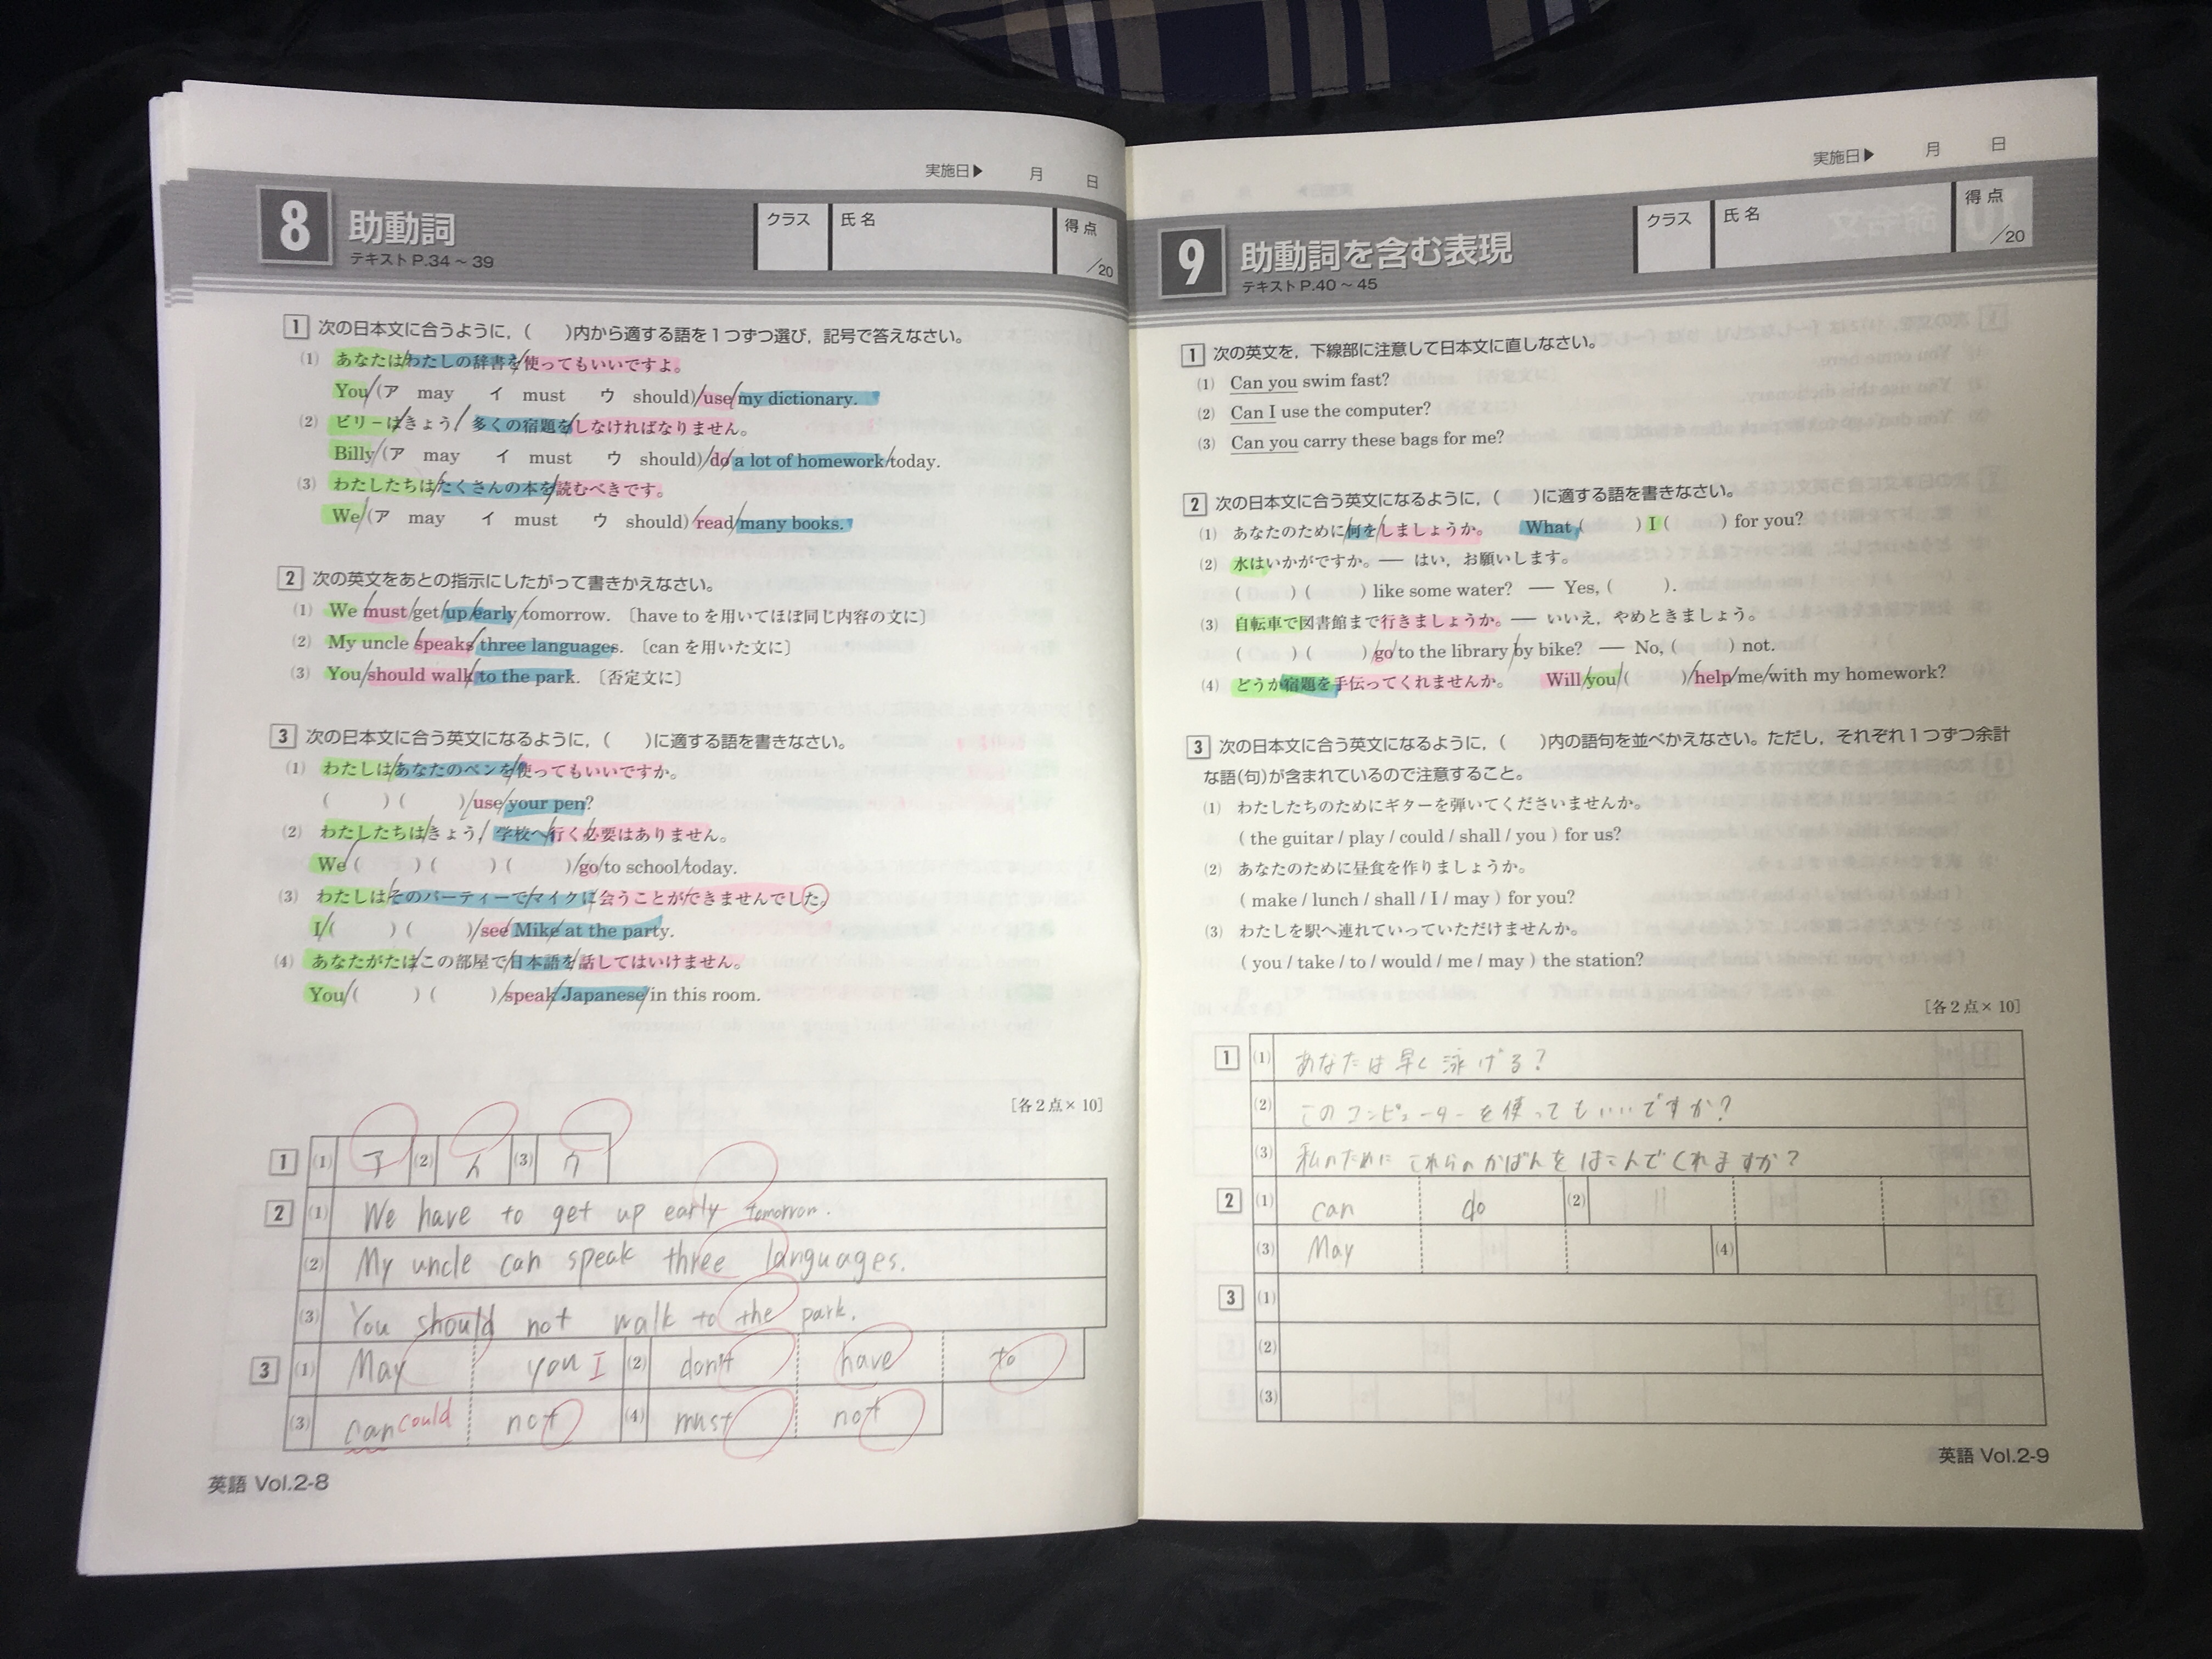 実施日▶ 月 日
8 助動詞
テキスト P.34～39
クラス 氏名 得点 /20
1 次の日本文に合うように，（ ）内から適する語を1つずつ選び，記号で答えなさい。
(1) あなたはわたしの辞書を使ってもいいですよ。
You (ア may イ must ウ should) use my dictionary.
(2) ビリーはきょう多くの宿題をしなければなりません。
Billy (ア may イ must ウ should) do a lot of homework today.
(3) わたしたちはたくさんの本を読むべきです。
We (ア may イ must ウ should) read many books.
2 次の英文をあとの指示にしたがって書きかえなさい。
(1) We must get up early tomorrow. 〔have to を用いてほぼ同じ内容の文に〕
(2) My uncle speaks three languages. 〔can を用いた文に〕
(3) You should walk to the park. 〔否定文に〕
3 次の日本文に合う英文になるように，（ ）に適する語を書きなさい。
(1) わたしはあなたのペンを使ってもいいですか。
( ) ( ) use your pen?
(2) わたしたちはきょう，学校へ行く必要はありません。
We ( ) ( ) ( ) go to school today.
(3) わたしはそのパーティーでマイクに会うことができませんでした。
I ( ) ( ) see Mike at the party.
(4) あなたがたはこの部屋で日本語を話してはいけません。
You ( ) ( ) speak Japanese in this room.
[各2点×10]
1 (1) ア (2) イ (3) ウ
2 (1) We have to get up early tomorrow.
(2) My uncle can speak three languages.
(3) You should not walk to the park.
3 (1) May you I (2) don't have to
(3) can could not (4) must not
英語 Vol.2-8
実施日▶ 月 日
9 助動詞を含む表現
テキスト P.40～45
クラス 氏名 得点 /20
1 次の英文を，下線部に注意して日本文に直しなさい。
(1) Can you swim fast?
(2) Can I use the computer?
(3) Can you carry these bags for me?
2 次の日本文に合う英文になるように，（ ）に適する語を書きなさい。
(1) あなたのために何をしましょうか。 What ( ) I ( ) for you?
(2) 水はいかがですか。— はい，お願いします。
( ) ( ) like some water? — Yes, ( ).
(3) 自転車で図書館まで行きましょうか。— いいえ，やめときましょう。
( ) ( ) go to the library by bike? — No, ( ) not.
(4) どうか宿題を手伝ってくれませんか。 Will you ( ) help me with my homework?
3 次の日本文に合う英文になるように，（ ）内の語句を並べかえなさい。ただし，それぞれ1つずつ余計
な語(句)が含まれているので注意すること。
(1) わたしたちのためにギターを弾いてくださいませんか。
( the guitar / play / could / shall / you ) for us?
(2) あなたのために昼食を作りましょうか。
( make / lunch / shall / I / may ) for you?
(3) わたしを駅へ連れていっていただけませんか。
( you / take / to / would / me / may ) the station?
[各2点×10]
1 (1) あなたは早く泳げる？
(2) このコンピューターを使ってもいいですか？
(3) 私のために これらのかばんを はこんでくれますか？
2 (1) can do (2)
(3) May (4)
3 (1)
(2)
(3)
英語 Vol.2-9